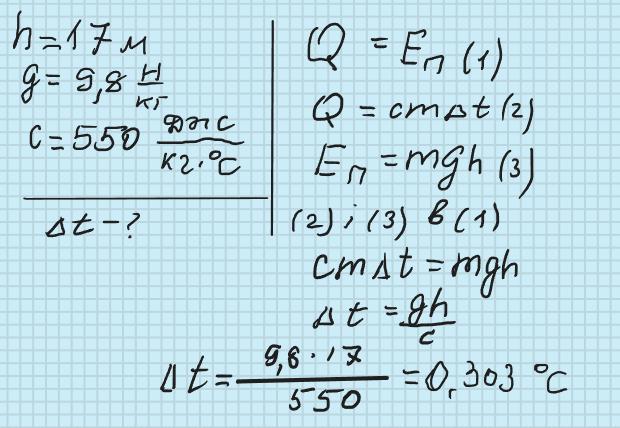 h=17м
g=9,8 Н/кг
c=550 Дж/кг·°C
Δt-?
Q = Eп (1)
Q = cmΔt (2)
Eп = mgh (3)
(2); (3) в (1)
cmΔt = mgh
Δt = gh/c
Δt = 9,8·17/550 = 0,303 °C